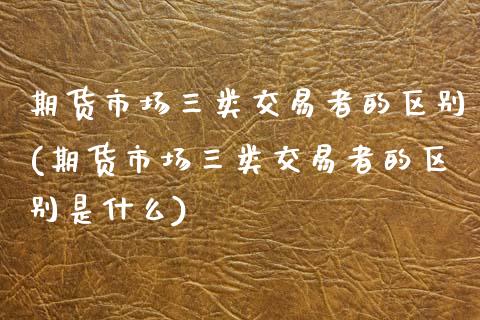 期货市场三类交易者的区别
(期货市场三类交易者的区
别是什么)